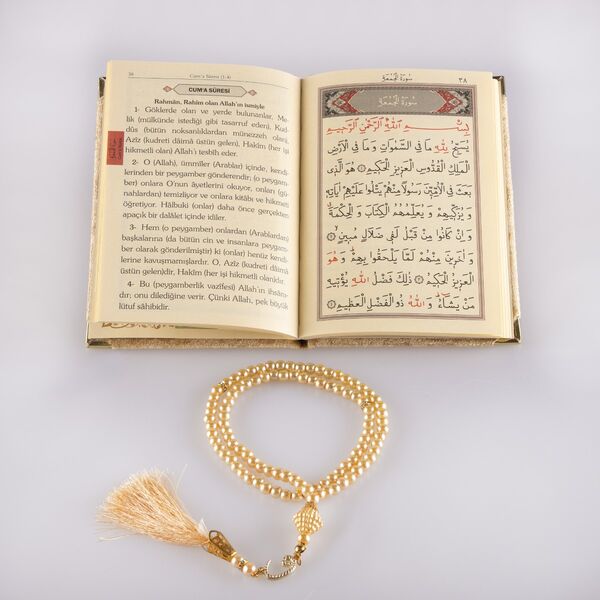 38
Cum'a Sûresi (1-4)
CUM'A SÛRESİ
Rahmân, Rahîm olan Allah'ın ismiyle
1- Göklerde olan ve yerde bulunanlar, Me-
lik (mülkünde istediği gibi tasarruf eden), Kud-
dûs (bütün noksanlıklardan münezzeh olan),
Azîz (kudreti dâimâ üstün gelen), Hakîm (her işi
hikmetli olan) Allah'ı tesbîh eder.
2- O (Allah), ümmîler (Arablar) içinde, kendi-
lerinden bir peygamber gönderendir; (o peygam-
ber) onlara O'nun âyetlerini okuyor, onları (gü-
nahlardan) temizliyor ve onlara kitâbı ve hikmeti
öğretiyor. Hâlbuki onlar) daha önce gerçekten
apaçık bir dalâlet içinde idiler.
3- Hem (o peygamber) onlardan (Arablardan)
başkalarına (da bütün cin ve insanlara peygam-
ber olarak gönderilmiştir) ki (onlar) henüz kendi-
lerine kavuşmamışlardır. O, Azîz (kudreti dâimâ
üstün gelen)dir, Hakîm (her işi hikmetli olan)dır.
4- Bu (peygamberlik vazîfesi) Allah'ın ihsânı-
dır; onu dilediğine verir. Çünki Allah, pek büyük
lütuf sâhibidir.
سُورَةُ الْجُمُعَةِ
٣٨
سُورَةُ الْجُمُعَةِ
بِسْمِ اللّٰهِ الرَّحْمٰنِ الرَّحِيمِ
يُسَبِّحُ لِلّٰهِ مَا فِي السَّمٰوَاتِ وَمَا فِي الْاَرْضِ
الْمَلِكِ الْقُدُّوسِ الْعَزِيزِ الْحَكِيمِ ﴿١﴾ هُوَ الَّذِي
بَعَثَ فِي الْاُمِّيّنَ رَسُولًا مِنْهُمْ يَتْلُوا عَلَيْهِمْ اٰيَاتِهِ
وَيُزَكِّيهِمْ وَيُعَلِّمُهُمُ الْكِتَابَ وَالْحِكْمَةَ
وَاِنْ كَانُوا مِنْ قَبْلُ لَفِي ضَلَالٍ مُبِينٍ ﴿٢﴾
وَاٰخَرِينَ مِنْهُمْ لَمَّا يَلْحَقُوا بِهِمْ وَهُوَ
الْعَزِيزُ الْحَكِيمُ ﴿٣﴾ ذٰلِكَ فَضْلُ اللّٰهِ يُؤْتِيهِ
مَنْ يَشَاءُ وَاللّٰهُ ذُو الْفَضْلِ الْعَظِيمِ ﴿٤﴾